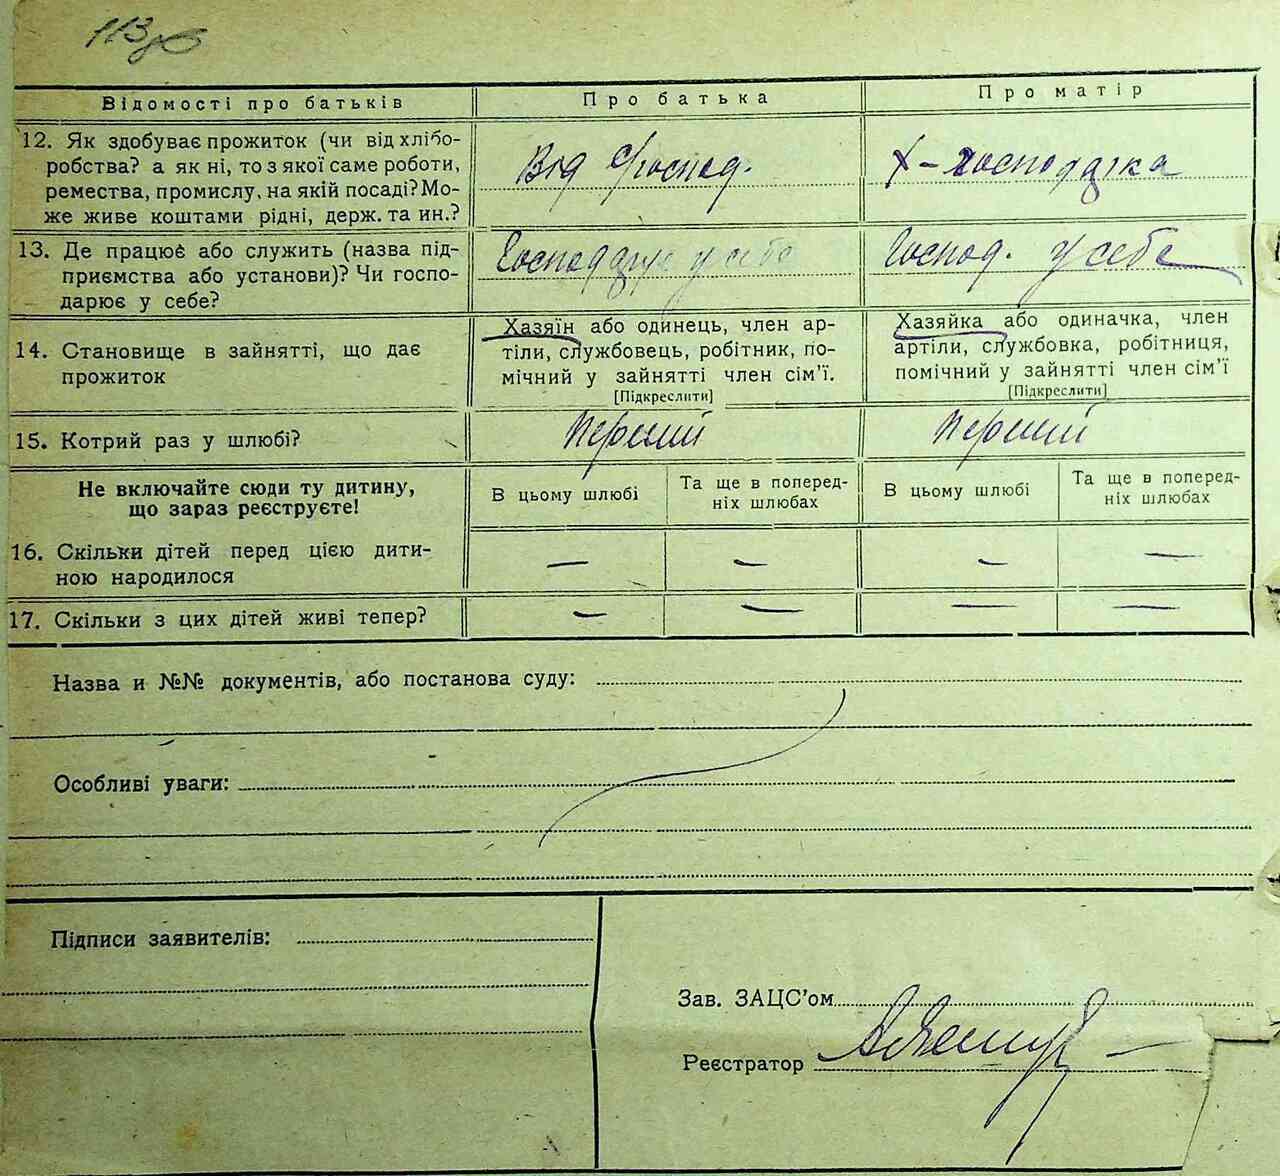 113
Відомості про батьків
Про батька
Про матір
12. Як здобуває прожиток (чи від хлібо-
робства? а як ні, то з якої саме роботи,
ремества, промислу, на якій посаді? Мо-
же живе коштами рідні, держ. та ин.?
Від
Х-господарка
13. Де працює або служить (назва під-
приємства або установи)? Чи госпо-
дарює у себе?
Господарює у себе
Господ. у себе
14. Становище в зайнятті, що дає
прожиток
Хазяїн або одинець, член ар-
тіли, службовець, робітник, по-
мічний у зайнятті член сім'ї.
[Підкреслити]
Хазяйка або одиначка, член
артіли, службовка, робітниця,
помічний у зайнятті член сім'ї
[Підкреслити]
15. Котрий раз у шлюбі?
Перший
Перший
Не включайте сюди ту дитину,
що зараз реєструєте!
В цьому шлюбі
Та ще в поперед-
ніх шлюбах
В цьому шлюбі
Та ще в поперед-
ніх шлюбах
16. Скільки дітей перед цією дити-
ною народилося
— — — —
17. Скільки з цих дітей живі тепер?
— — — —
Назва и №№ документів, або постанова суду:
Особливі уваги:
Підписи заявителів:
Зав. ЗАЦС'ом
Реєстратор